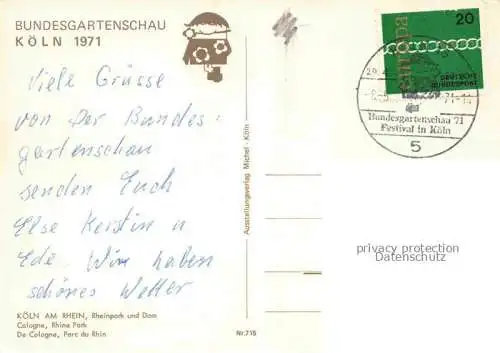 BUNDESGARTENSCHAU
KÖLN 1971
Viele Grüsse
von der Bundes-
gartenschau
senden Euch
Else Kerstin u
Ede. Wir haben
schönes Wetter
KÖLN AM RHEIN, Rheinpark und Dom
Cologne, Rhine Park
De Cologne, Parc du Rhin
Ausstellungsverlag Michel · Köln
Nr.715
20
europa
DEUTSCHE
BUNDESPOST
Bundesgartenschau 71
Festival in Köln
5
privacy protection
Datenschutz